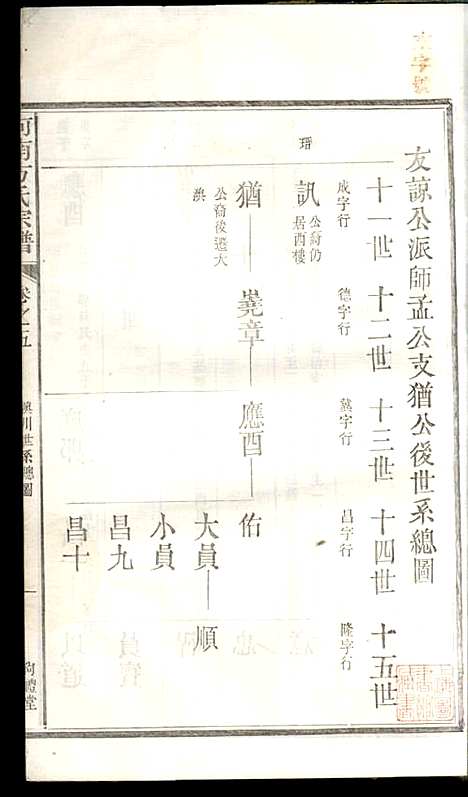 友諒公派師孟公支猶公後世系總圖
十一世 十二世 十三世 十四世 十五世
成字行 德字行 冀字行 昌字行 隆字行
瑨
訊 公裔仍居酉樓
猶 公裔後遷大澳
堯章
應酉
佑
大員 順
小員
昌九
昌十
河南方氏宗譜
卷之五
世系總圖